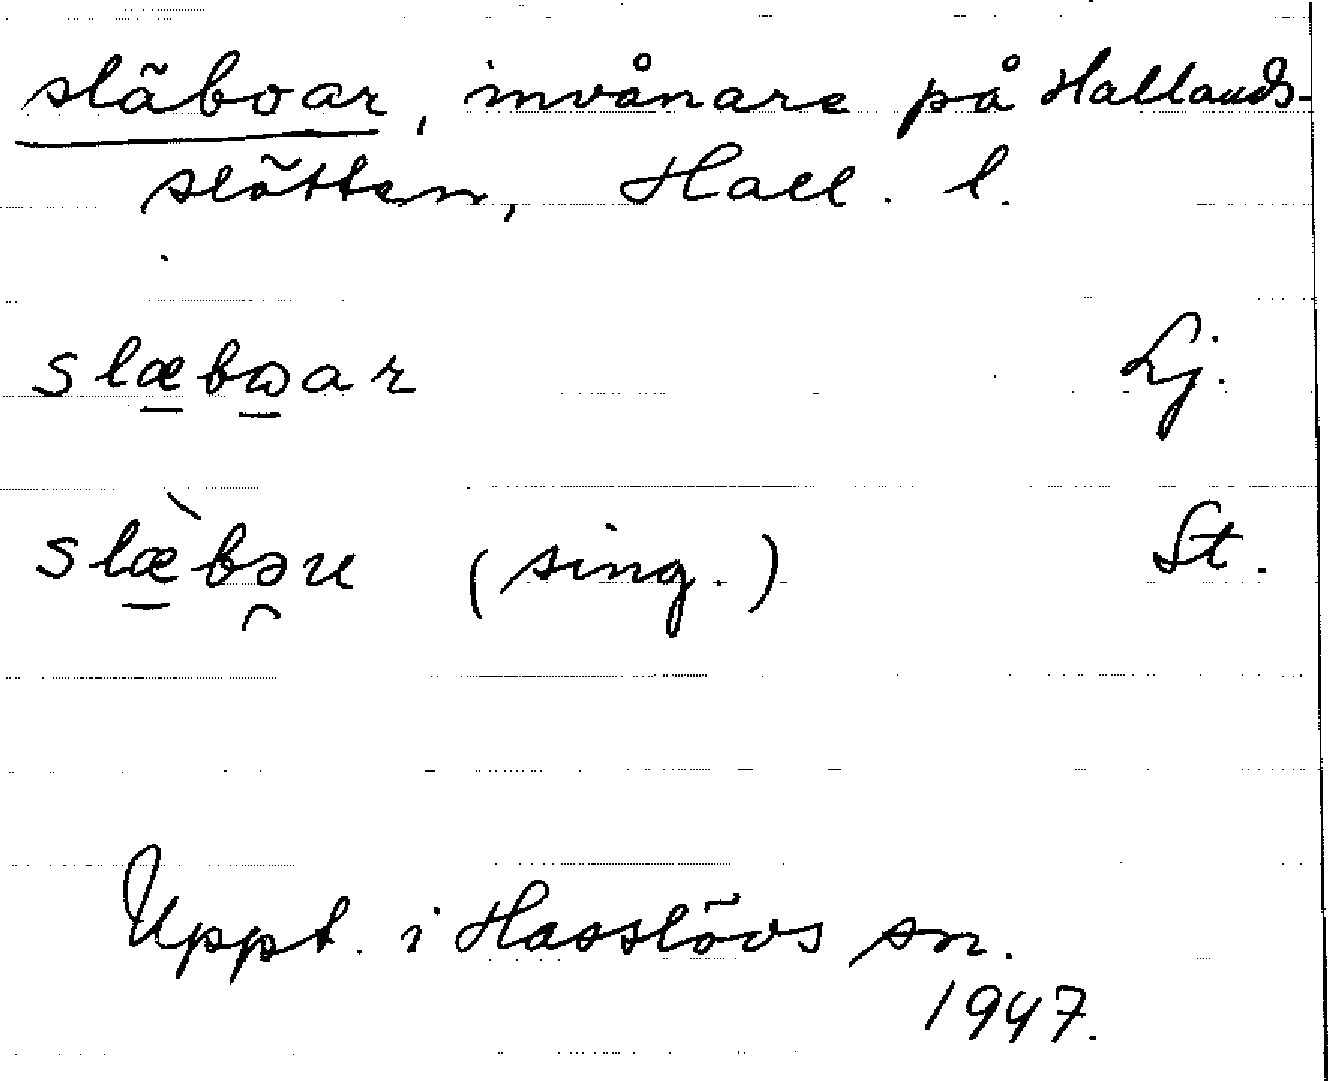 släboar, invånare på Hallands-
slätten, Hall. l.
slæ̠bω̠ar Lj.
slæ̠̀bə̯ɴ (sing.) St.
Uppt. i Hasslövs sn.
1947.